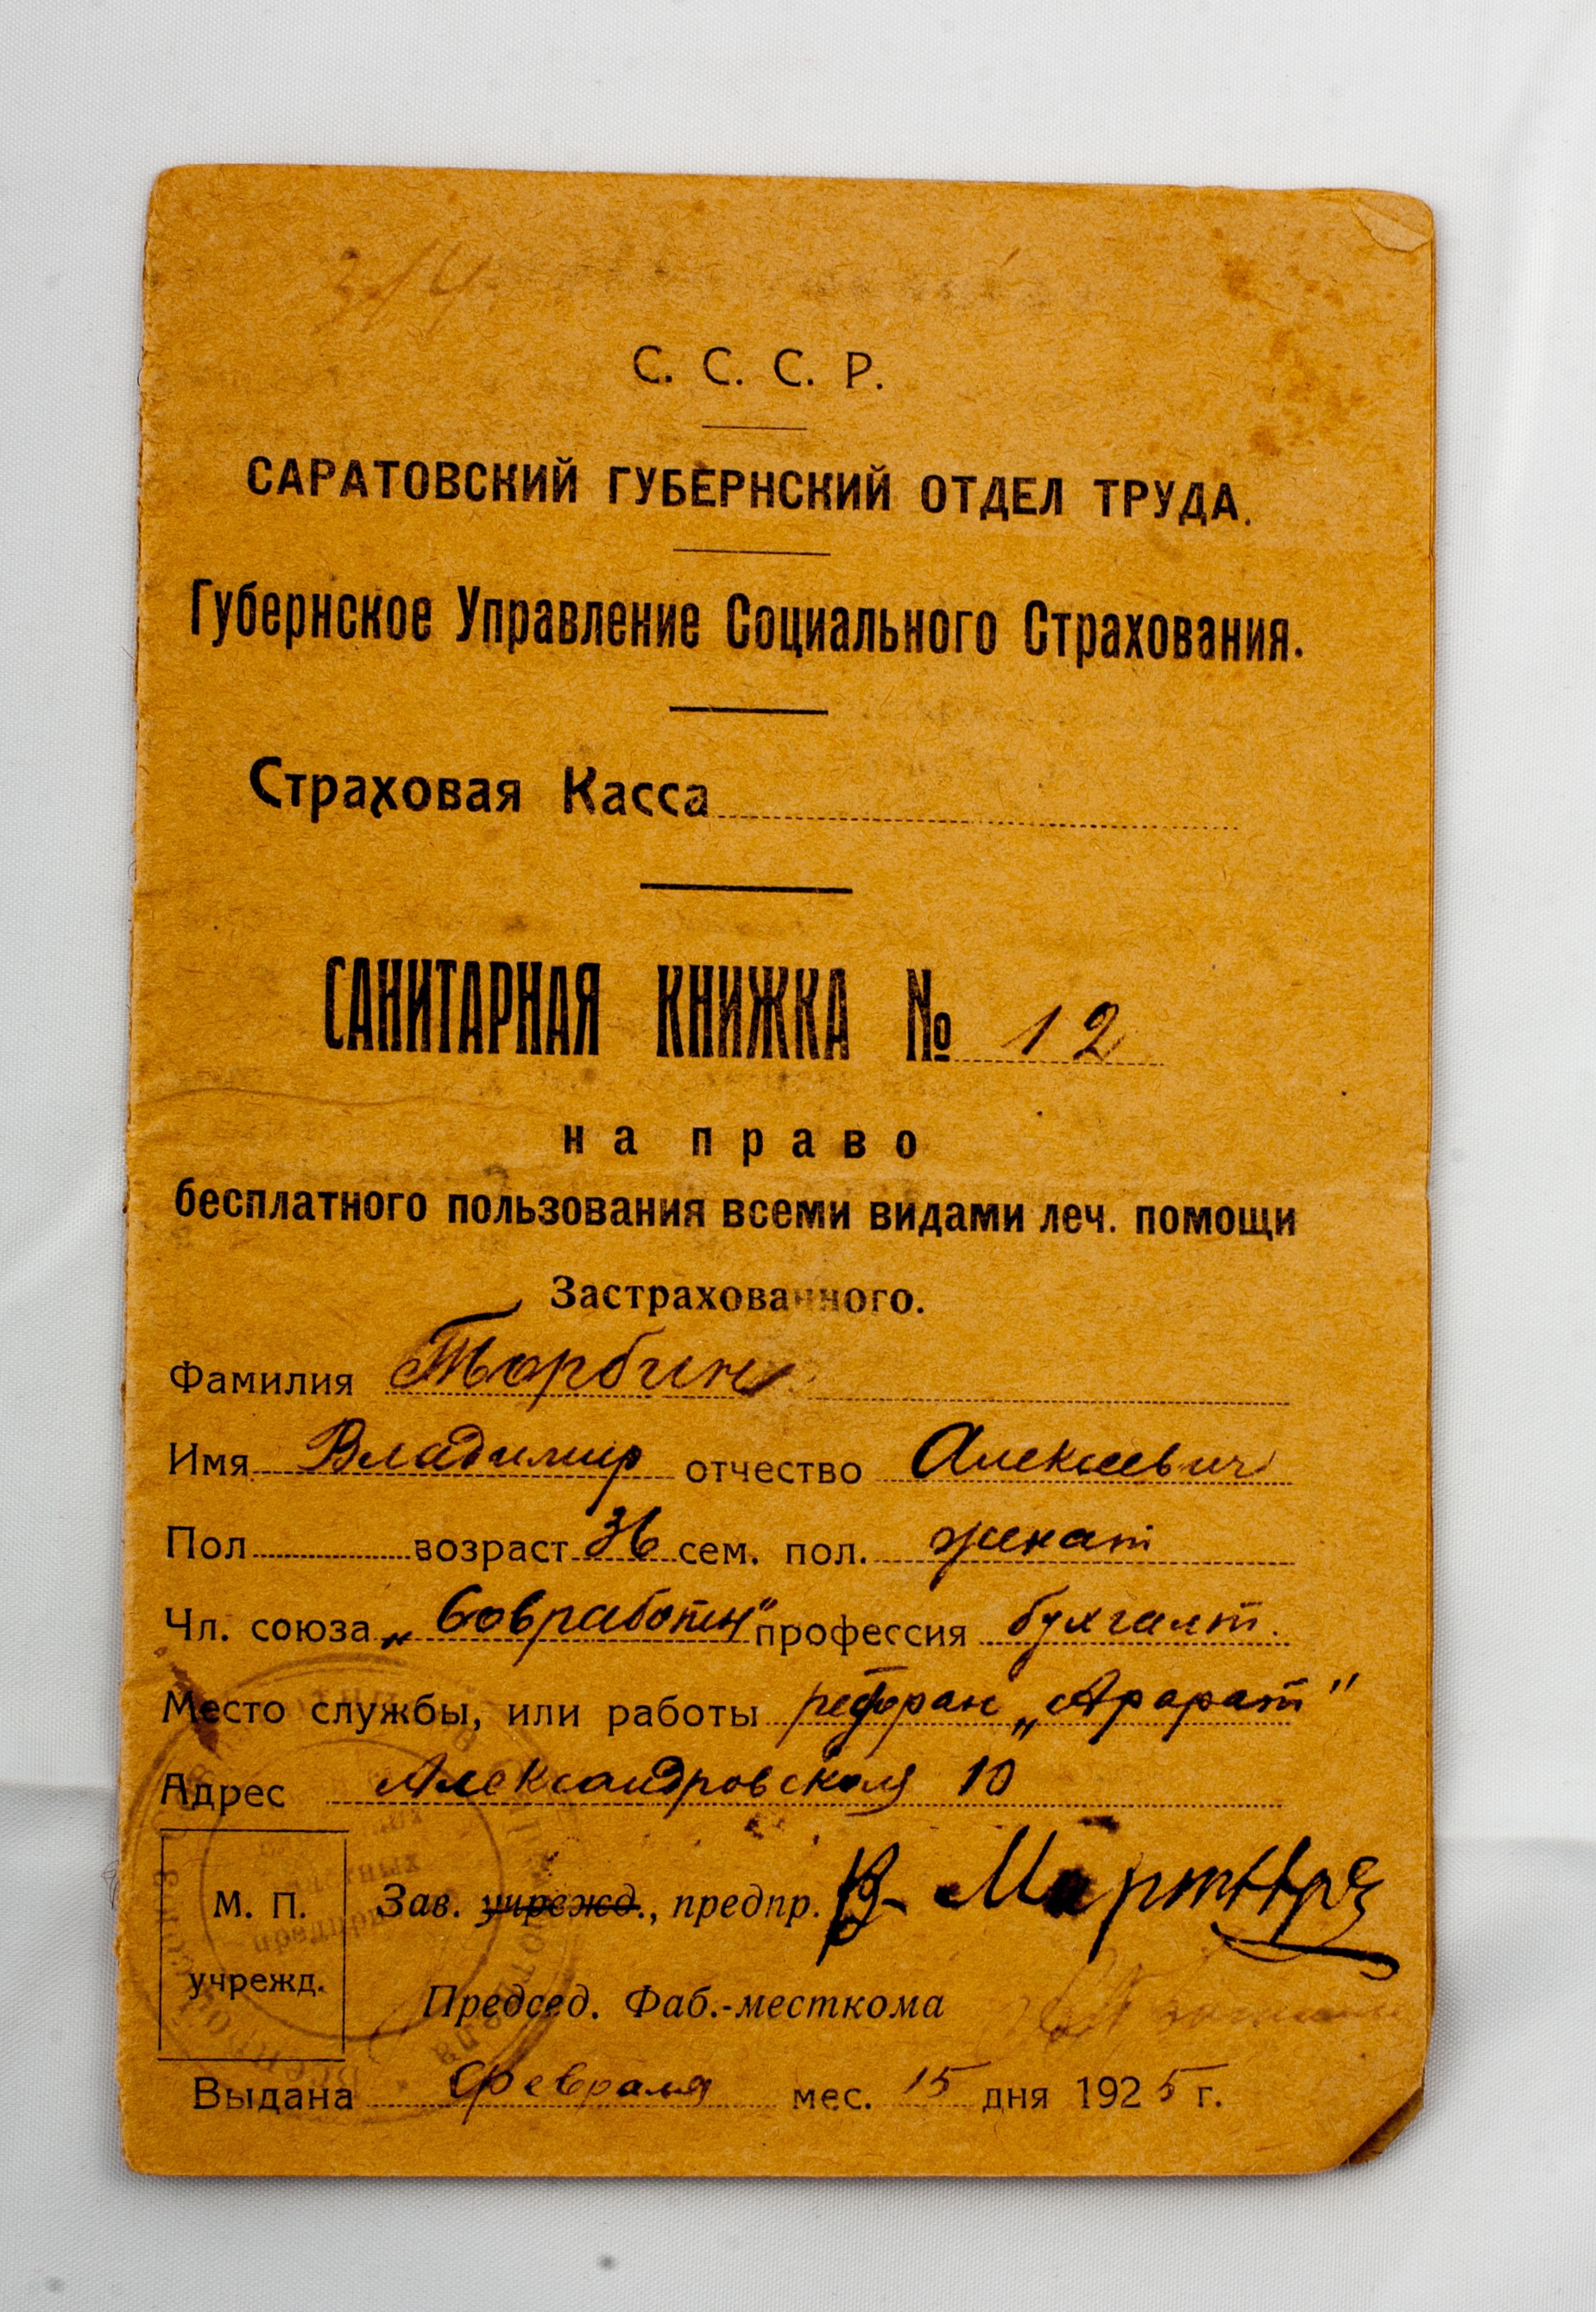 С. С. С. Р.
САРАТОВСКИЙ ГУБЕРНСКИЙ ОТДЕЛ ТРУДА.
Губернское Управление Социального Страхования.
Страховая Касса
САНИТАРНАЯ КНИЖКА № 12
на право
бесплатного пользования всеми видами леч. помощи
Застрахованного.
Фамилия Торбин
Имя Владимир отчество Алексеевич
Пол возраст 36 сем. пол. женат
Чл. союза „Совработн" профессия бухгалт.
Место службы, или работы „Арарат"
Адрес Александровская 10
М. П.
учрежд.
Зав. учрежд., предпр. В.
Председ. Фаб.-месткома
Выдана февраля мес. 15 дня 1925 г.